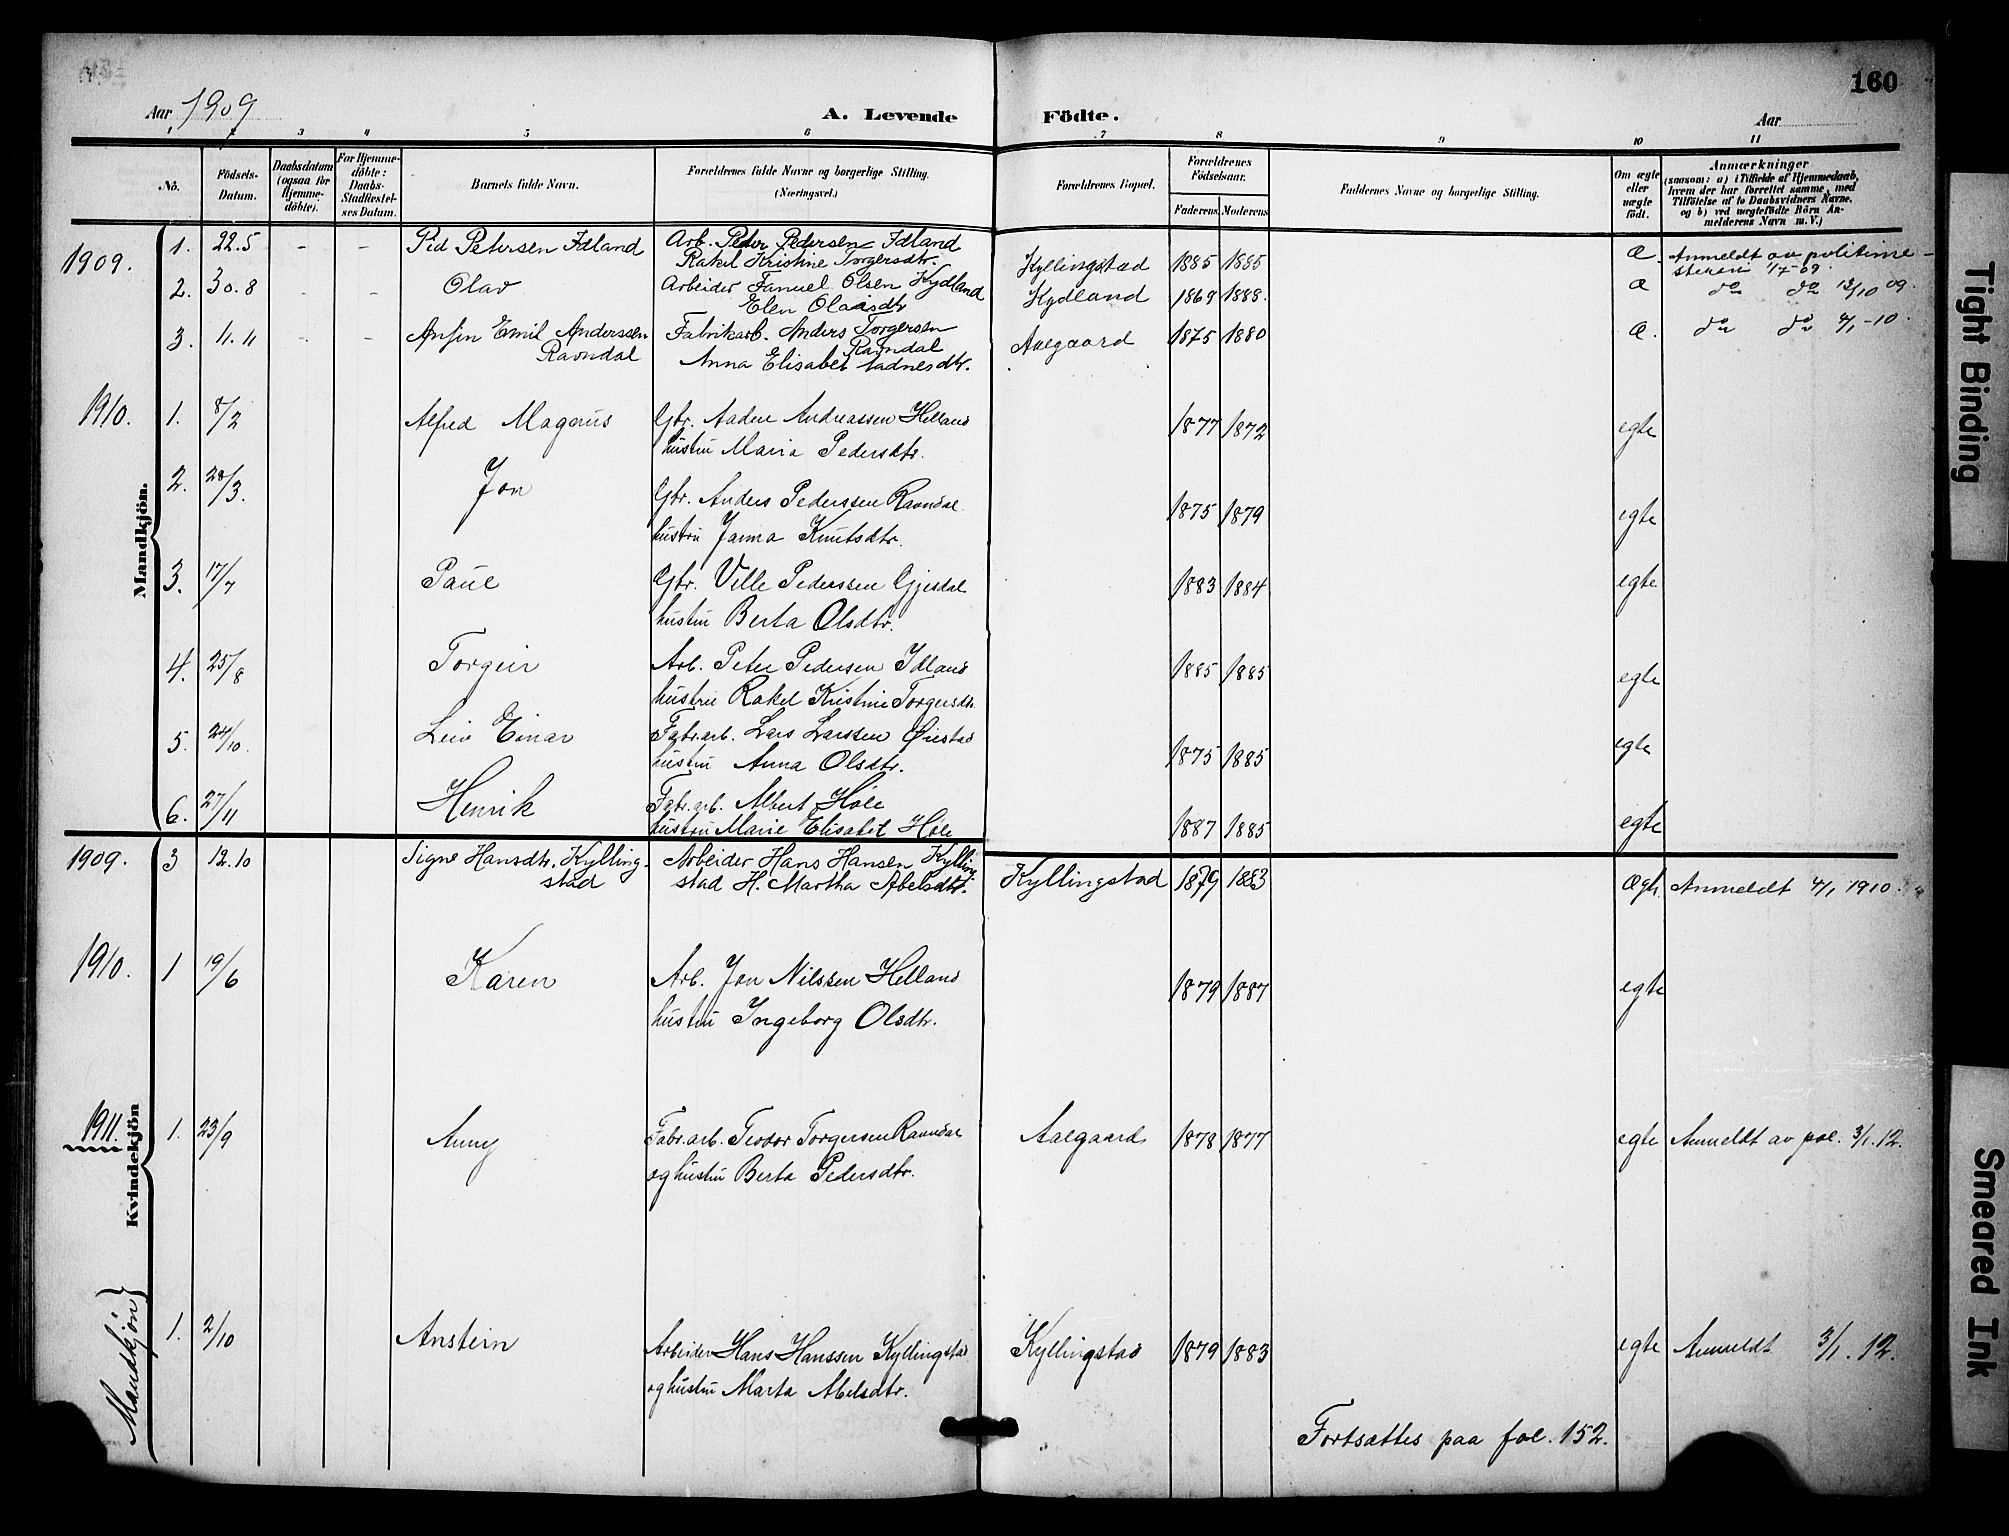 160
Aar 1909
A. Levende Födte.
Aar
1 2 3 4 5 6 7 8 9 10 11
No.
Födsels-Datum.
Daabsdatum (ogsaa for Hjemme-döbte).
For Hjemme-döbte: Daabs-Stadfæstel-ses Datum.
Barnets fulde Navn.
Forældrenes fulde Navne og borgerlige Stilling.
(Næringsvei.)
Forældrenes Bopæl.
Forældrenes Födselsaar.
Faderens Moderens
Faddernes Navne og borgerlige Stilling.
Om ægte eller uægte födt.
Anmærkninger
(saasom: a) i Tilfælde af Hjemmedaab,
hvem der har forrettet samme, med
Tilföielse af to Daabsvidners Navne,
og b) ved uægtefödte Börn An-
melderens Navn m. V.)
Mandkjön.
1909. 1. 22.5 - - Ped Petersen Idland Arb. Peder Pedersen Idland
Rakel Kristine Torgersdtr. Kyllingstad 1885 1885 Æ. Anmeldt av politime-
steren 1/7-09.
2. 30.8 - - Olav Arbeider Fanuel Olsen Kydland
Elen Olaisdtr Kydland 1869 1888. Æ do do 12/10 09.
3. 11.11 - - Emil Anderssen
Ravndal Fabrikarb. Anders Torgersen
Ravndal
Anna Elisabet Aadnesdtr. Aalgaard 1875 1880 Æ. do do 4/1-10.
1910. 1. 8/2 Alfred Magnus Gbr. Aadne Andreassen Helland
hustru Maria Pedersdtr. 1877 1872 egte
2. 28/3. Jon Gbr. Anders Pederssen Ravndal
hustru Janna Knutsdtr. 1875 1879 egte
3. 17/7 Paul Gbr. Velle Pederssen Gjesdal
hustru Berta Olsdtr. 1883 1884 egte
4. 25/8 Torgeir Arb. Peter Pedersen Idland
hustru Rakel Kristine Torgersdtr. 1885 1885 egte
5. 24/10. Leiv Einar Fabr.arb. Lars Larssen Øvestad
hustru Anna Olsdtr. 1875 1885 egte
6. 27/11 Henrik Fabr.arb. Albert Høle
hustru Marie Elisabet Høle 1887 1885 egte
Kvindekjön
1909. 3 12.10 Signe Hansdtr. Kylling-
stad Arbeider Hans Hansen Kylling-
stad H. Martha Abelsdtr. Kyllingstad 1879 1883 Ægte Anmeldt 4/1 1910.
1910. 1 19/6 Karen Arb. Jon Nilssen Helland
hustru Ingeborg Olsdtr. 1879 1887 egte
1911. 1. 23/9 Anny Fabr.arb. Teodor Torgersen Ravndal
og hustru Berta Pedersdtr. Aalgaard 1878 1877 egte Anmeldt av pol. 3/1.12.
Mandkjön
1. 2/10 Anstein Arbeider Hans Hanssen Kyllingstad
og hustru Marta Abelsdtr. Kyllingstad 1879 1883 egte Anmeldt 3/1.12.
Fortsættes paa fol. 152.
Tight Binding
Smeared Ink